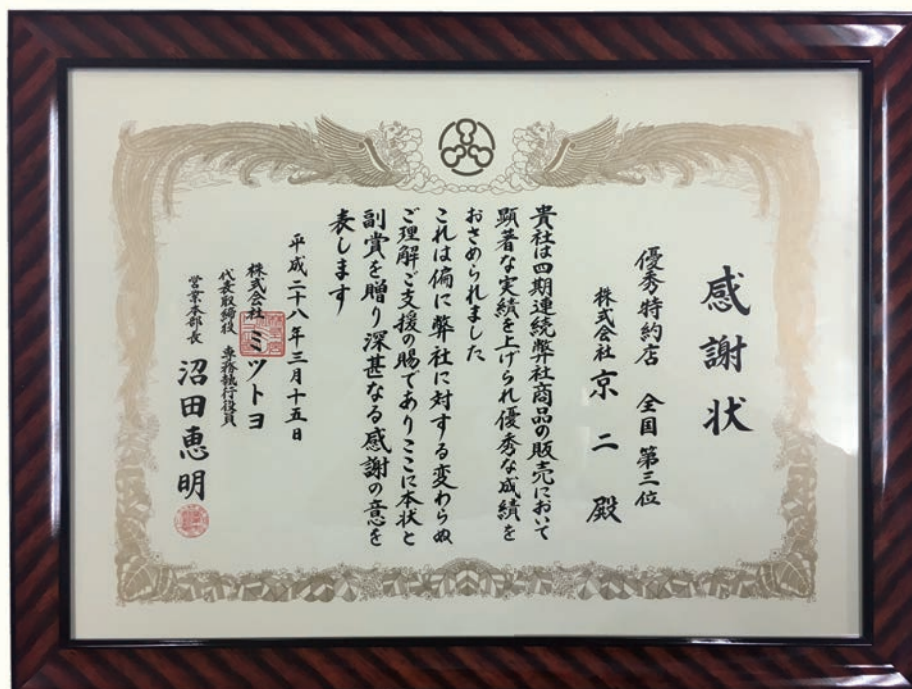 感謝状
優秀特約店 全国第三位
株式会社 京二 殿
貴社は四期連続弊社商品の販売において
顕著な実績を上げられ優秀な成績を
おさめられました
これは偏に弊社に対する変わらぬ
ご理解ご支援の賜でありここに本状と
副賞を贈り深甚なる感謝の意を
表します
平成二十八年三月十五日
株式会社 ミツトヨ
代表取締役 専務執行役員
営業本部長 沼田恵明